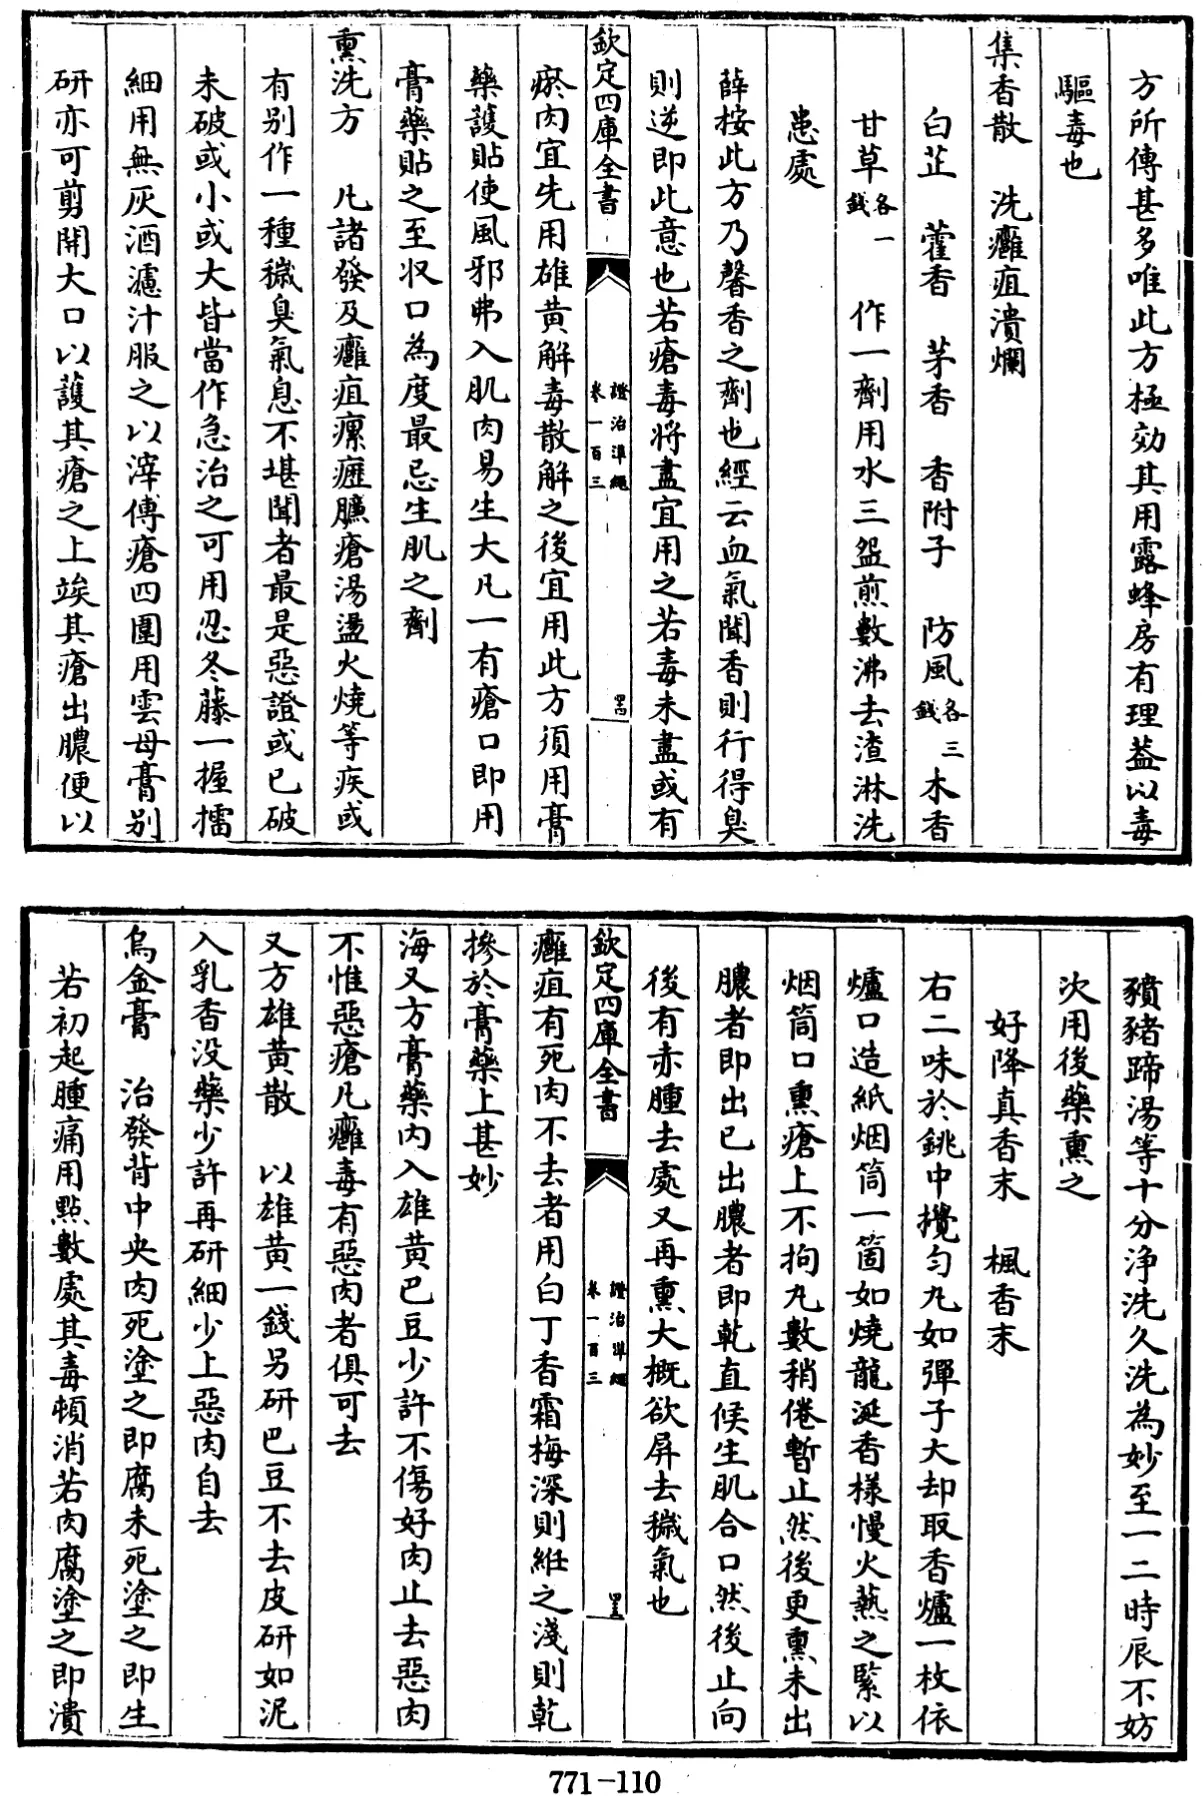 方所傳甚多唯此方極効其用露蜂房有理葢以毒
驅毒也
集香散　洗癰疽潰爛
白芷　藿香　茅香　香附子　防風各三錢　木香
甘草各一錢　作一劑用水三盌煎數沸去渣淋洗
患處
薛按此方乃馨香之劑也經云血氣聞香則行得臭
則逆即此意也若瘡毒將盡宜用之若毒未盡或有
欽定四庫全書
證治準繩
卷一百三
瘀肉宜先用雄黄解毒散解之後宜用此方須用膏
藥護貼使風邪弗入肌肉易生大凡一有瘡口即用
膏藥貼之至収口為度最忌生肌之劑
熏洗方　凡諸發及癰疽瘰癧臁瘡湯盪火燒等疾或
有别作一種穢臭氣息不堪聞者最是惡證或已破
未破或小或大皆當作急治之可用忍冬藤一握擂
細用無灰酒濾汁服之以滓傅瘡四圍用雲母膏别
研亦可剪開大口以護其瘡之上竢其瘡出膿便以
豶豬蹄湯等十分浄洗久洗為妙至一二時辰不妨
次用後藥熏之
好降真香末　楓香末
右二味於銚中攪匀丸如彈子大却取香爐一枚依
爐口造紙烟筒一箇如燒龍涎香様慢火爇之緊以
烟筒口熏瘡上不拘丸數稍倦暫止然後更熏未出
膿者即出已出膿者即乾直候生肌合口然後止向
後有赤腫去處又再熏大概欲屏去穢氣也
欽定四庫全書
證治準繩
卷一百三
癰疽有死肉不去者用白丁香霜梅深則絍之淺則乾
摻於膏藥上甚妙
海又方膏藥内入雄黄巴豆少許不傷好肉止去惡肉
不惟惡瘡凡癰毒有惡肉者俱可去
又方雄黄散　以雄黄一錢另研巴豆不去皮研如泥
入乳香没藥少許再研細少上惡肉自去
烏金膏　治發背中央肉死塗之即腐未死塗之即生
若初起腫痛用㸃數處其毒頓消若肉腐塗之即潰
771-110